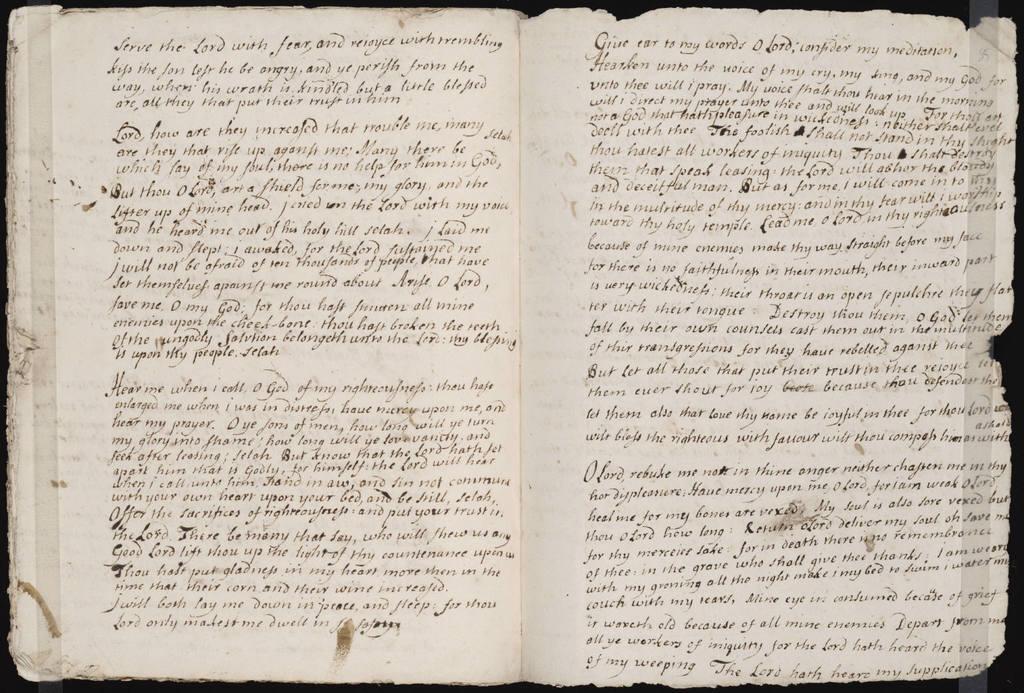 Serve the Lord with fear, and rejoyce with trembling
kiss the son lest he be angry, and ye perish from the
way, when his wrath is kindled but a little blessed
are all they that put their trust in him
Lord, how are they increased that trouble me, many
are they that rise up against me; Many there be
which say of my soul, there is no help for him in God, Selah
But thou O Lord art a shield for me, my glory, and the
lifter up of mine head. j cried vn the Lord with my voice
and he heard me out of his holy hill selah. j laid me
down and slept; i awaked, for the Lord sustained me
j will not be afraid of ten thousands of people, that have
set themselves against me round about Arise O Lord,
save me, O my God; for thou hast smitten all mine
enemies upon the cheek-bone: thou hast broken the teeth
of the ungodly Salvtion belongeth unto the Lord: thy blessing
is upon thy people, selah
Hear me when i call, O God of my righteousness: thou hast
enlarged me when i was in distress, have mercy upon me, and
hear my prayer. O ye sons of men, how long will ye turn
my glory into shame; how long will ye lov vanity, and
seek after leasing; selah But know that the Lord hath set
apart him that is Godly, for himself: the Lord will hear
when j call unto him, stand in aw, and sin not commune
with your own heart upon your bed, and be still, selah,
Offer the sacrifices of righteousness: and put your trust in
the Lord. There be many that say, who will shew us any
Good Lord lift thou up the light of thy countenance upon us
Thou hast put gladness in my heart, more then in the
time that their corn and their wine increased.
J will both lay me down in peace, and sleep: for thou
Lord only makest me dwell in safety
Give ear to my words O Lord; consider my meditation,
Hearken unto the voice of my cry, my king, and my God for
vnto thee will i pray. My voice shalt thou hear in the morning
will i direct my prayer unto thee and will look up For thou art
not a God that hath pleasure in wickedness: neither shall evel
deell with thee The foolish shall not stand in thy shight
thou hatest all workers of iniquity Thou shalt destroy
them that speak leasing: the Lord will abhor the bloody
and deceitful man. But as for me, i will come in to thy
in the multitude of thy mercy: and in thy fear will i worship
toward thy holy temple. Lead me O Lord in thy righteousness
because of mine enemies make thy way straight before my face
for there is no faithfulness in their mouth, their inward part
is very wickedness: their throat is an open sepulchre they flat
ter with their tongue: Destroy thou them, O God let them
fall by their own counsels cast them out in the multitude
of thir transgressions for they have rebelled against thee
But let all those that put their trust in thee rejoyce let
them ever shout for joy because thou defendest the
let them also that love thy name be joyful in thee for thou Lord
wilt bless the righteous with favour wilt thou compass him as with
a shield
O Lord, rebuke me not in thine anger neither chasten me in thy
hot displeasure; Have mercy upon me, O Lord, for i am weak O Lord
heal me for mey bones are vexed. My soul is also sore vexed but
thou O Lord how long: Return O Lord deliver my soul oh save me
for thy merceies sake: for in death there is no remembrance
of thee: in the grave who shall give thee thanks: I am weary
with my groning all the night make i my bed to swim i water my
couch with my tears, Mine eye in consumed because of grief
it waxeth old because of all mine enemies Depart from me
all ye workers of iniquity for the Lord hath heard the voice
of my weeping The Lord hath heard my supplication